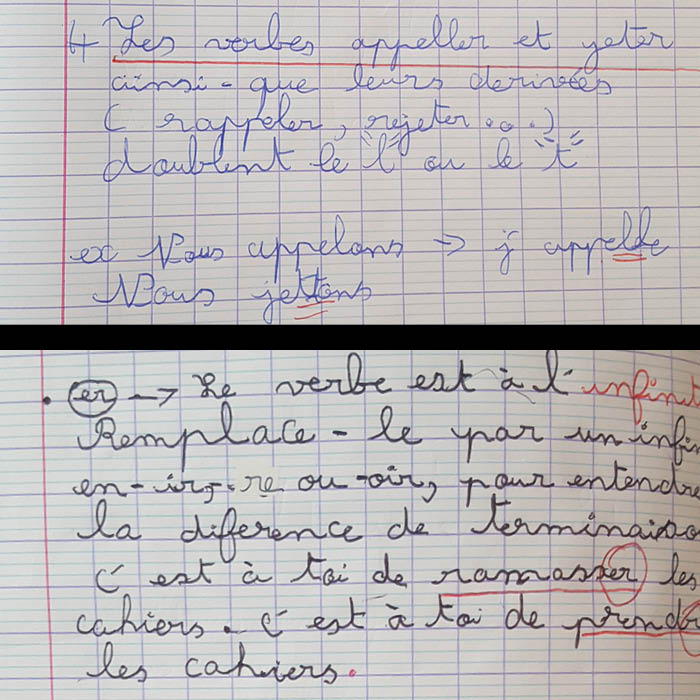 4 Les verbes appeller et jeter
ainsi-que leurs derivées
( rappeler, rejeter ...)
doublent le "l" ou le "t"
ex Nous appelons → j'appelle
Nous jettons
. er → Le verbe est à l'infinit
Remplace-le par un infin
en -ir, -re ou -oir, pour entendre
la diference de terminaiso
C'est à toi de ramasser les
cahiers. C'est à toi de prendr
les cahiers.